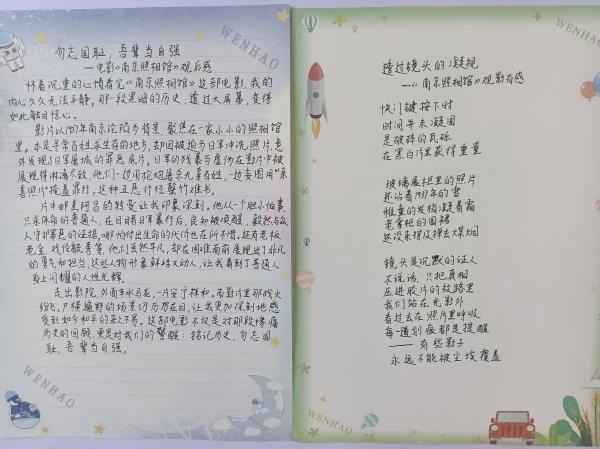 WENHAO
勿忘国耻 吾辈当自强
—电影《南京照相馆》观后感
怀着沉重的心情看完《南京照相馆》这部电影,我的
内心久久无法平静。那一段黑暗的历史,透过大屏幕,变得
如此触目惊心。
影片以1937年南京沦陷为背景,聚焦在一家小小的照相馆
里。本是寻常百姓求生存的地方,却因被迫为日军冲洗照片,意
外发现了日军屠城的罪恶底片。日军的残暴与虚伪在影片中被
展现得淋漓尽致,他们一边用枪炮屠杀无辜百姓,一边妄图用“亲
善照片”掩盖罪行,这种丑恶行径罄竹难书。
片中邮差阿昌的转变让我印象深刻。他从一个胆小怕事,
只求保命的普通人,在目睹日军暴行后,良知被唤醒,毅然与众
人守护罪恶的证据,哪怕付出生命的代价也在所不惜,还有老板
老金、戏伶毓秀等,他们虽然平凡,却在国难面前展现出了非凡
的勇气和担当,这些人物形象鲜活又动人,让我看到了普通人
身上闪耀的人性光辉。
走出影院,外面车水马龙,一片安宁祥和。而影片里那战火
纷飞,尸横遍野的场景仍历历在目,让我更加深刻地感
受到如今和平的来之不易。这部电影不仅是对那段惨痛
历史的回顾,更是对我们的警醒:铭记历史,勿忘国
耻,吾辈当自强。
WENHAO
WENHAO
透过镜头的凝视
—《南京照相馆》观影有感
快门键按下时
时间并未凝固
是破碎的瓦砾
在黑白片里获得重量
玻璃展柜里的照片
还沾着1937年的雪
稚童的发梢凝着霜
老掌柜的围裙
还没来得及掸去煤烟
镜头是沉默的证人
不说话,只把真相
压进胶片的纹路里
我们站在光影外
看过去在照片里呼吸
每一道划痕都是提醒
——有些影子
永远不能被尘埃覆盖
WENHAO